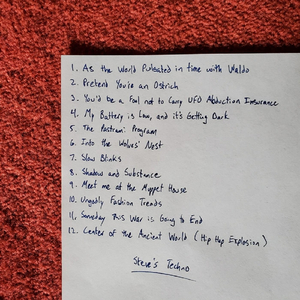 1. As the World Pulsated in time with Waldo
2. Pretend You're an Ostrich
3. You'd be a Fool not to Carry UFO Abduction Insurance
4. My Battery is Low, and it's Getting Dark
5. The Pastrami Program
6. Into the Wolves' Nest
7. Slow Blinks
8. Shadow and Substance
9. Meet me at the Muppet House
10. Ungodly Fashion Trends
11. Someday This War is Going to End
12. Center of the Ancient World (Hip Hop Explosion)
Steve's Techno